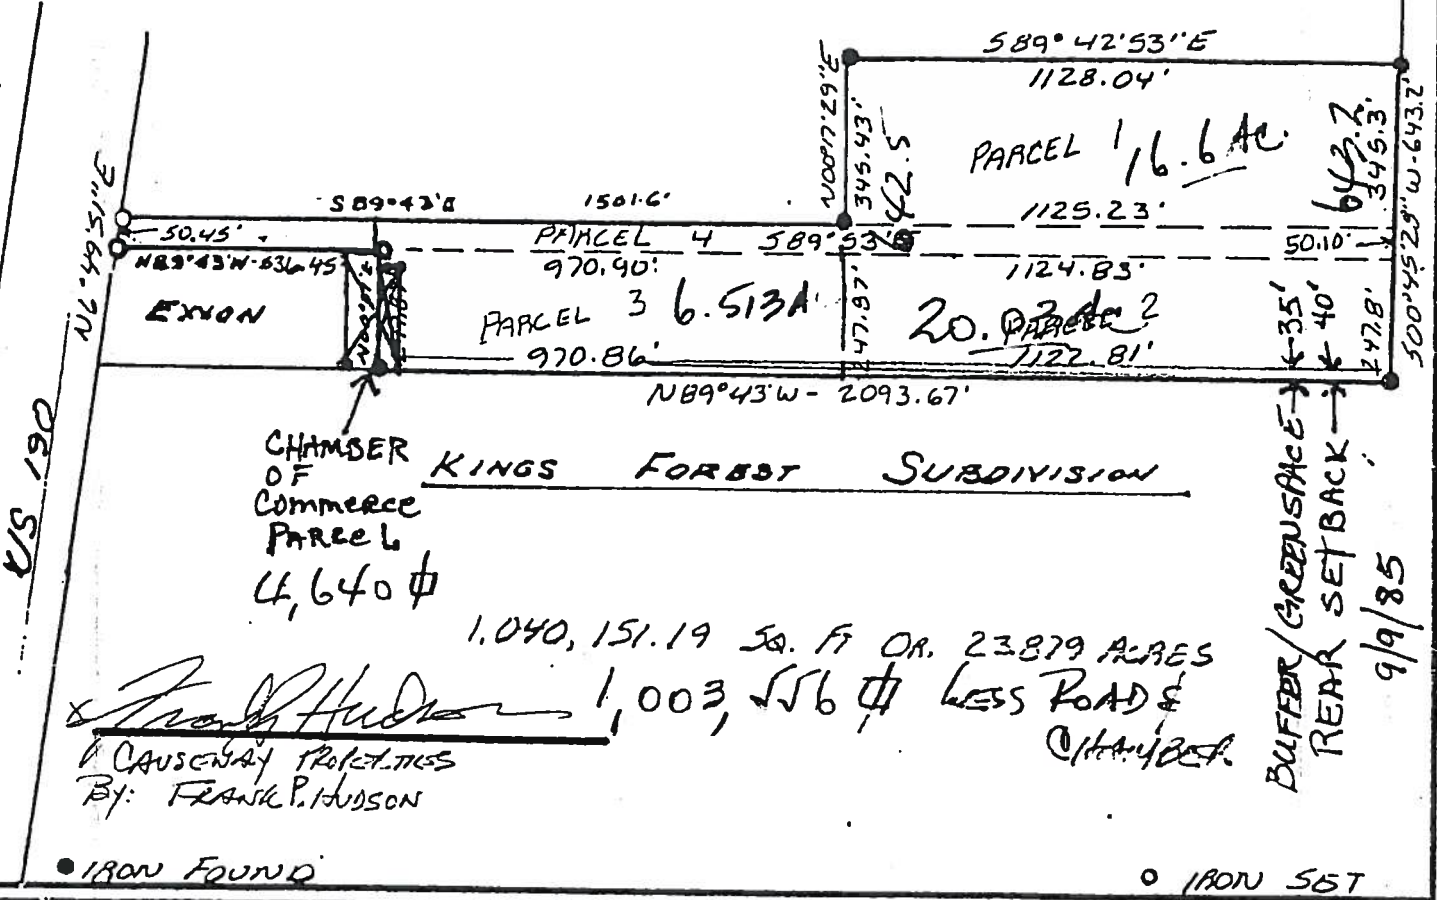 S89°42'53"E
1128.04'
N00°17'29"E
345.43'
42.5
PARCEL 1
16.6 AC.
643.2
345.3'
S00°45'29"W-643.2'
N6°49'51"E
S89°43'E
1501.6'
1125.23'
50.45'
PARCEL 4
S89°53'E
50.10'
N89°43'W-536.45'
970.90'
1124.83'
EXXON
PARCEL 3
6.513A
247.87'
20.03 Ac
PARCEL 2
35'
40'
247.8'
970.86'
1122.81'
N89°43'W - 2093.67'
US 190
CHAMBER
OF
Commerce
PARCEL
4,640
KINGS FOREST SUBDIVISION
BUFFER/GREENSPACE
REAR SETBACK
9/9/85
1.040,151.19 SQ. FT OR. 23.879 ACRES
1,003,556 LESS ROAD &
CHAMBER
x Frank P Hudson
CAUSEWAY PROPERTIES
BY: FRANK P. HUDSON
IRON FOUND
IRON SET